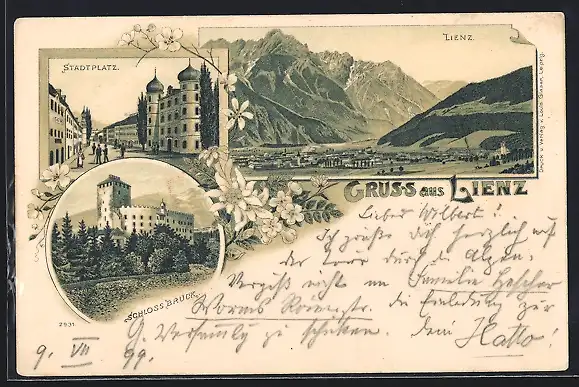 STADTPLATZ.
LIENZ.
Druck u. Verlag v. Louis Glaser, Leipzig.
GRUSS aus LIENZ
Lieber Wilbert!
Ich grüße dich herzlich auf
der Tour durch die Alpen.
Vergiß nicht an Familie
Worms die Einladung zur
G. Versamlg zu schicken. dem Hatto!
SCHLOSS BRUCK.
2931
9. VII 99.